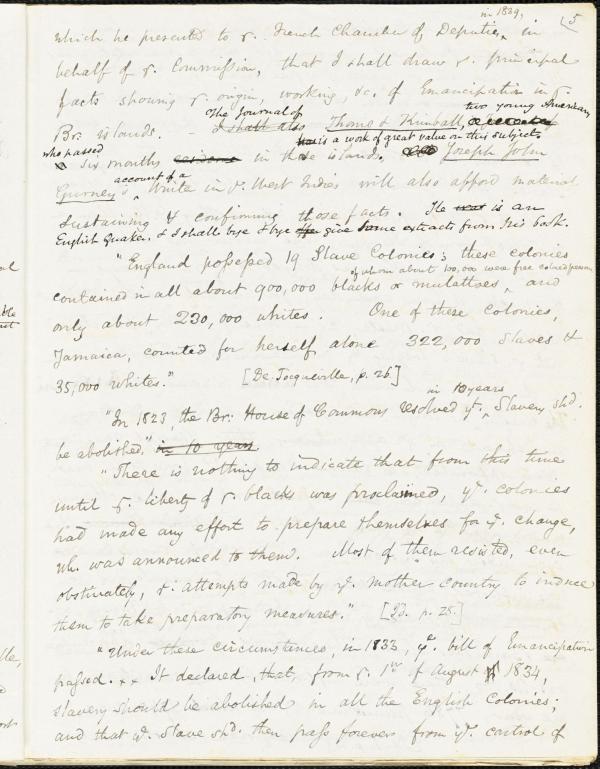 in 1839,
5
which he presented to ye. French Chamber of Deputies, in
behalf of ye. Commission, that I shall draw ye. principal
facts showing ye. origin, working, &c. of Emancipation in ye.
two young Americans
The Journal of
Br: islands. — I shall also Thome & Kimball,
is a work of great value on this subject.
who passed
six months residence in those islands. Joseph John
account of a
Gurney's Winter in ye. West Indies will also afford material
sustaining & confirming those facts. He was is an
English Quaker. & I shall bye & bye give some extracts from his book.
"England possessed 19 Slave Colonies; these colonies
of whom about 100,000 were free colored persons
contained in all about 900,000 blacks or mulattoes, and
only about 230,000 whites. One of these colonies,
Jamaica, counted for herself alone 322,000 slaves &
35,000 whites." [De Tocqueville, p. 26]
in 10 years
"In 1823, the Br: House of Commons resolved yt. Slavery shd.
be abolished," in 10 years.
"There is nothing to indicate that from this time
until ye. liberty of ye. blacks was proclaimed, ye. colonies
had made any effort to prepare themselves for ye. change,
wh. was announced to them. Most of them resisted, even
obstinately, ye. attempts made by ye. mother country to induce
them to take preparatory measures." [Ib. p. 25.]
"Under these circumstances, in 1833, ye. bill of Emancipation
passed. x x It declared that, from ye. 1st of August 1834,
slavery should be abolished in all the English Colonies;
and that ye. Slave shd. then pass forever from ye. control of